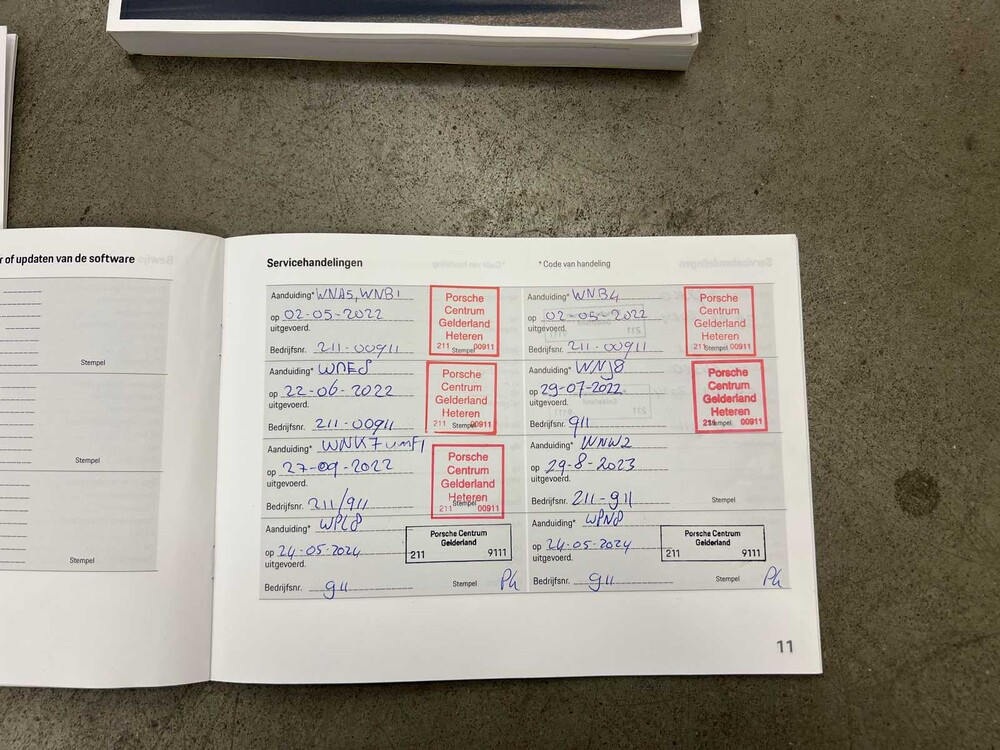 r of updaten van de software
Stempel
Stempel
Stempel
Servicehandelingen
* Code van handeling
Aanduiding* WNA5, WNB1
op 02-05-2022
uitgevoerd.
Bedrijfsnr. 211-00911
Porsche
Centrum
Gelderland
Heteren
211 Stempel 00911
Aanduiding* WNB4
op 02-05-2022
uitgevoerd.
Bedrijfsnr. 211-00911
Porsche
Centrum
Gelderland
Heteren
211 Stempel 00911
Aanduiding*
op 22-06-2022
uitgevoerd.
Bedrijfsnr. 211-00911
Porsche
Centrum
Gelderland
Heteren
211 Stempel 00911
Aanduiding* WNJ8
op 29-07-2022
uitgevoerd.
Bedrijfsnr. 911
Porsche
Centrum
Gelderland
Heteren
211 Stempel 00911
Aanduiding* WNK7
op 27-09-2022
uitgevoerd.
Bedrijfsnr. 211/911
Porsche
Centrum
Gelderland
Heteren
211 Stempel 00911
Aanduiding* WNW2
op 29-8-2023
uitgevoerd.
Bedrijfsnr. 211-911
Stempel
Aanduiding* WPL8
op 24-05-2024
uitgevoerd.
Bedrijfsnr. 911
Porsche Centrum
Gelderland
211 9111
Stempel
Aanduiding* WPN8
op 24-05-2024
uitgevoerd.
Bedrijfsnr. 911
Porsche Centrum
Gelderland
211 9111
Stempel
11